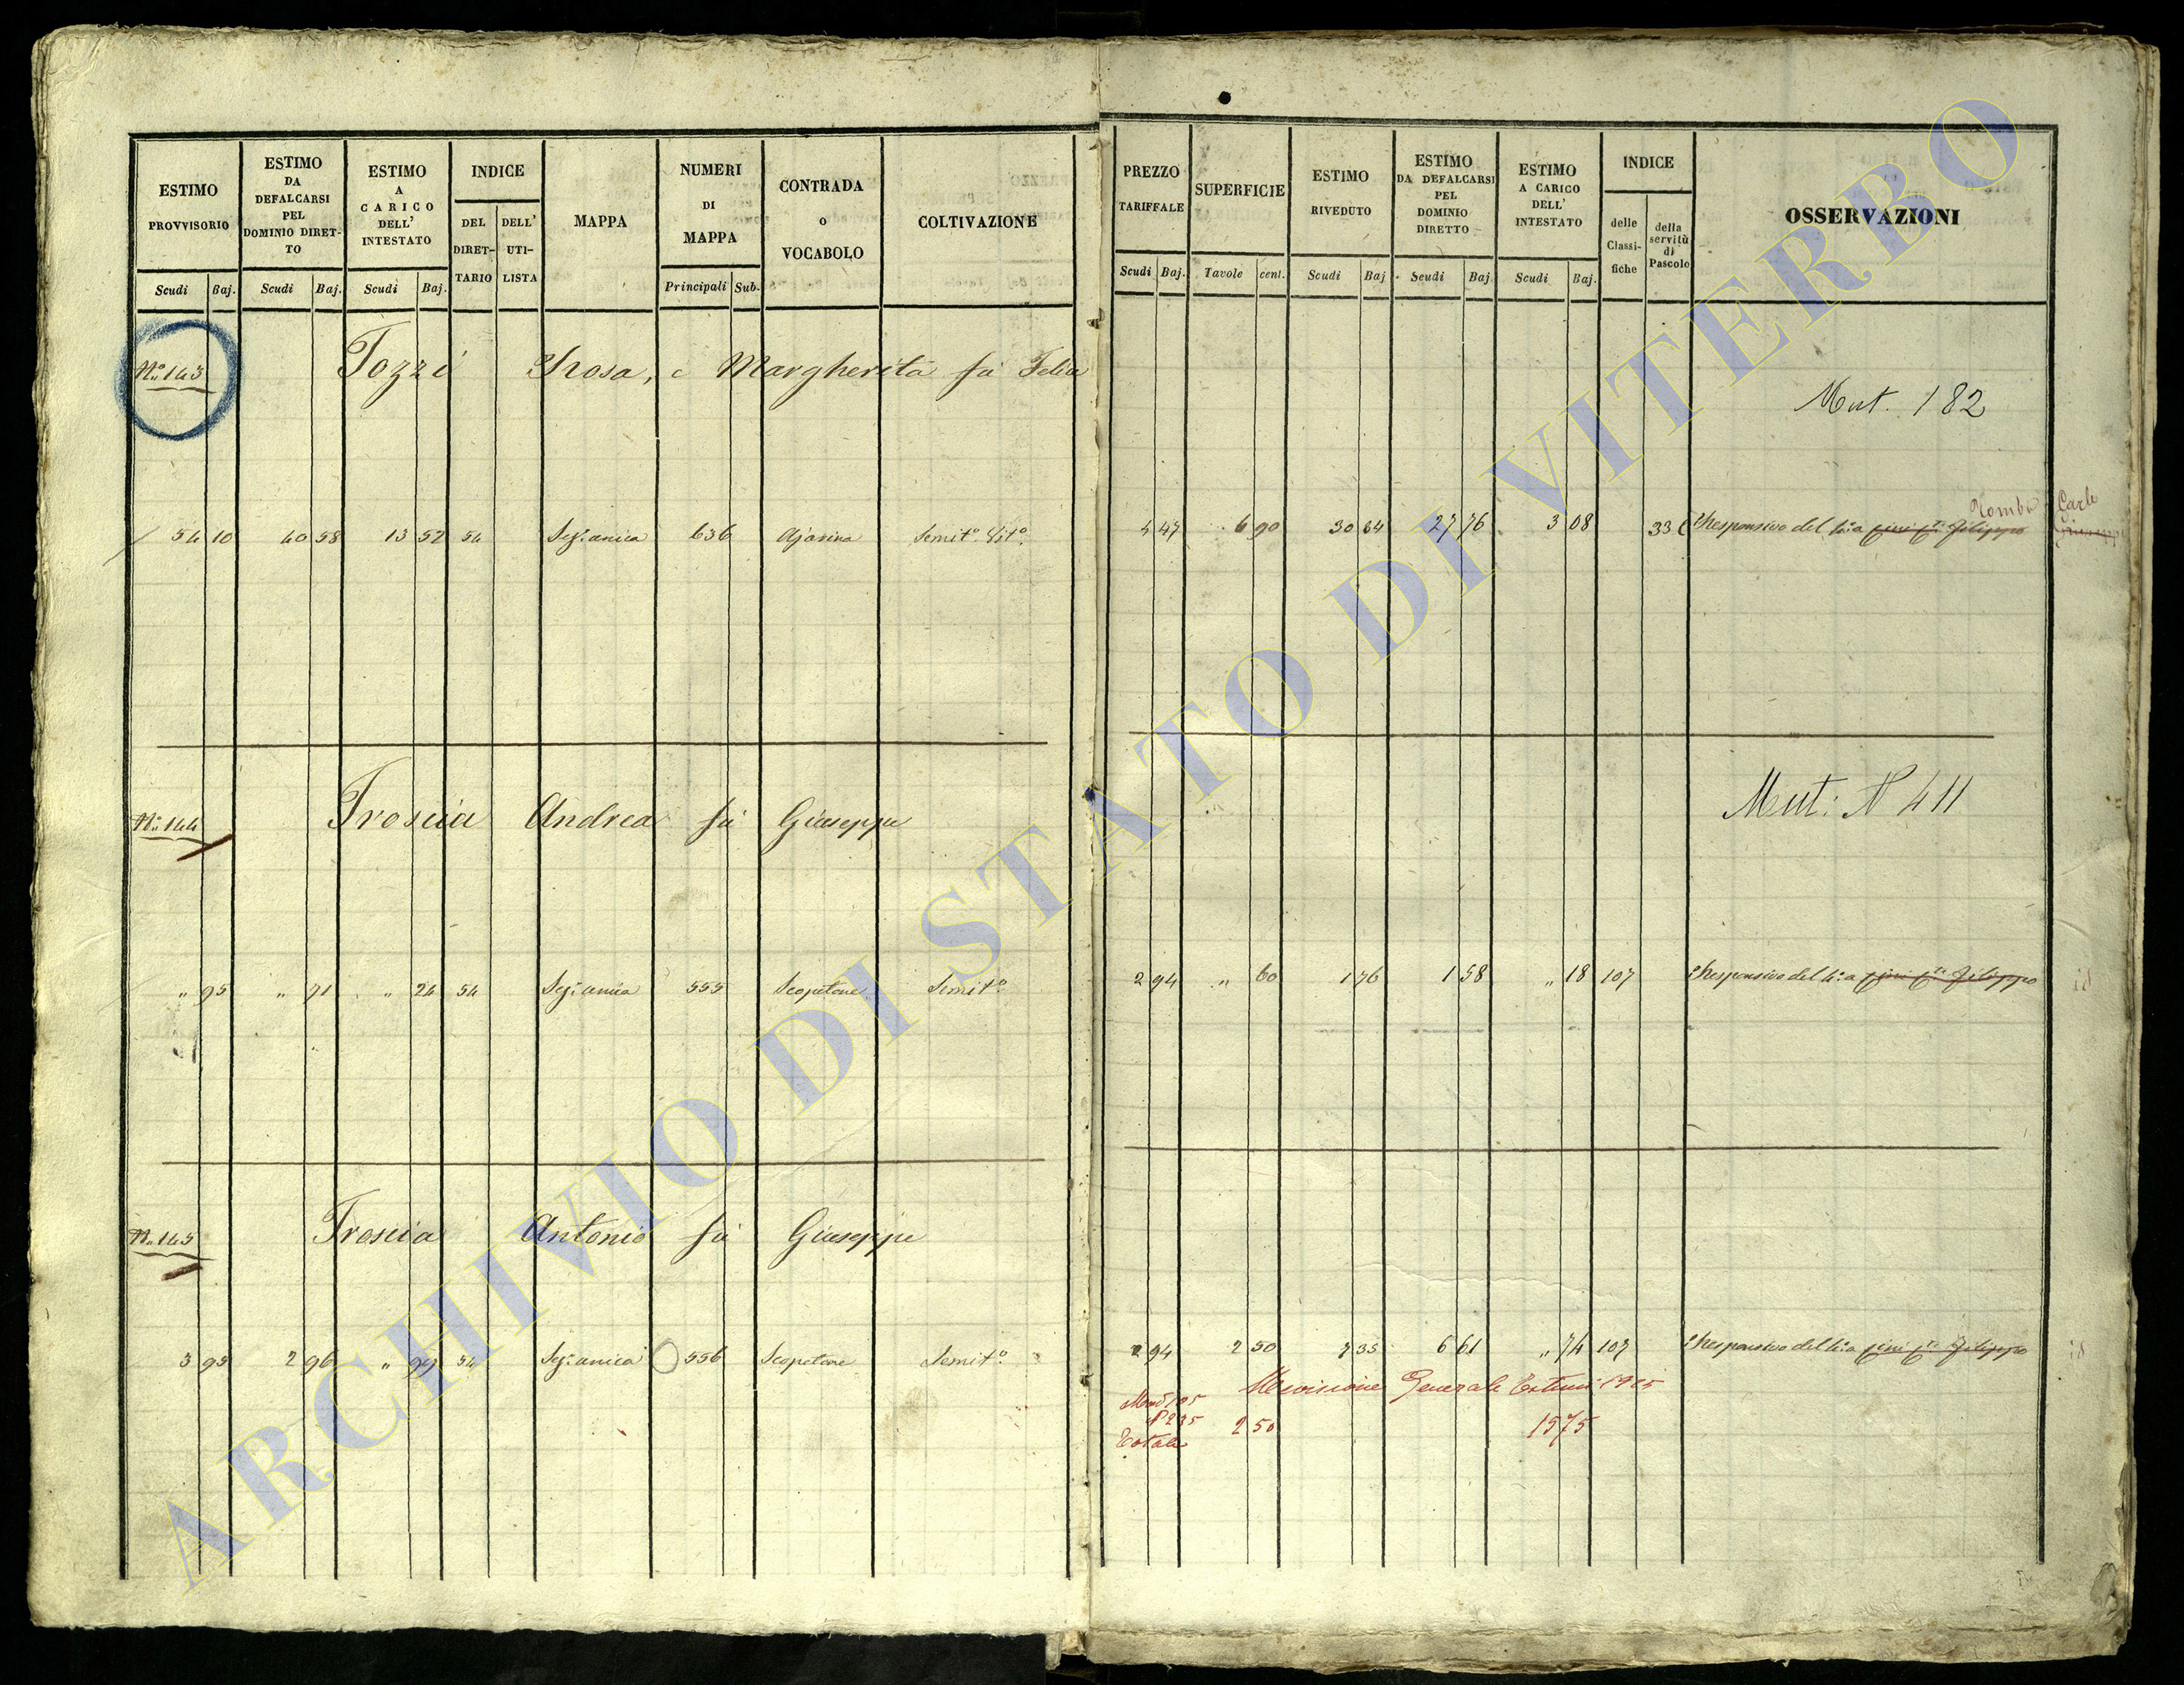 ESTIMO PROVVISORIO
Scudi Baj.
ESTIMO DA DEFALCARSI PEL DOMINIO DIRETTO
Scudi Baj.
ESTIMO A CARICO DELL' INTESTATO
Scudi Baj.
INDICE
DEL DIRETTARIO
DELL' UTILISTA
MAPPA
NUMERI DI MAPPA
Principali Sub.
CONTRADA o VOCABOLO
COLTIVAZIONE
PREZZO TARIFFALE
Scudi Baj.
SUPERFICIE
Tavole cent.
ESTIMO RIVEDUTO
Scudi Baj
ESTIMO DA DEFALCARSI PEL DOMINIO DIRETTO
Scudi Baj.
ESTIMO A CARICO DELL' INTESTATO
Scudi Baj.
INDICE
delle Classifiche
della servitù di Pascolo
OSSERVAZIONI
Nº 143 Tozzi Rosa, e Margherita fù Felice
Mut. 182
54 10 40 58 13 52 54 Sez.e unica 636 Ajarina Semit.o Vit.o
4 47 6 90 30 84 27 76 3 08 33 Responsivo del 4.a
Carlo
Nº 144 Troscia Andrea fù Giuseppe
Mut: N 411
" 95 " 71 " 24 54 Sez.e unica 555 Scopetone Semit.o
2 94 " 60 1 76 1 58 " 18 107 Responsivo del 4.a Filippo
Nº 145 Troscia Antonio fù Giuseppe
3 95 2 96 " 99 54 Sez.e unica 556 Scopetone Semit.o
2 94 2 50 7 35 6 61 " 74 107 Responsivo del 4.a Filippo
Revisione Generale Estimi
Totale 2 50 1575
ARCHIVIO DI STATO DI VITERBO